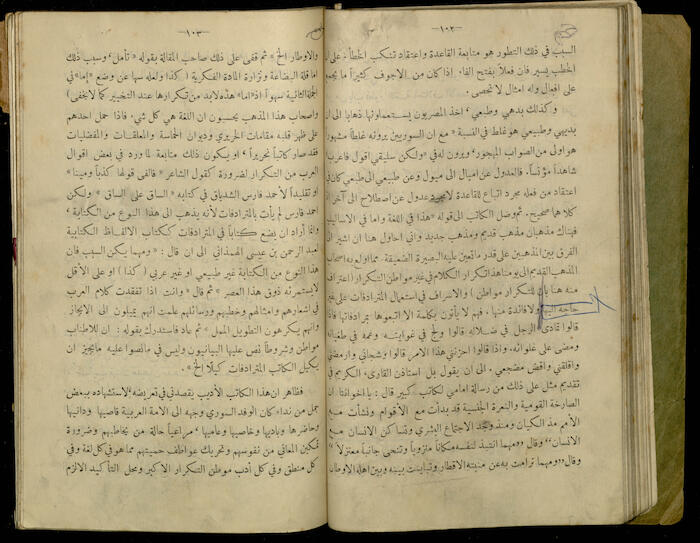 — ١٠٢ —
السبب في ذلك التطور هو متابعة القاعدة واعتقاد تنكب الخطأ. على ان
الخطب يسير فان فعلاً بفتح الفاء اذا كان من الاجوف كثيراً ما يجمع
على افعال وله امثال لا تحصى.
وكذلك بدهي وطبعي، اخذ المصريون يستعملونها ذهاباً الى ان
بديهي وطبيعي هو غلط في النسبة مع ان السوريين يرونه غلطاً مشهوراً
هو اولى من الصواب المهجور، ويرون له في «ولكن سليقي اقول فاعرب»
شاهداً مؤنساً. فالعدول عن اميال الى ميول وعن طبيعي الى طبعي كان في
اعتقاد من فعله مجرد اتباع للقاعدة لا مجرد عدول عن اصطلاح الى آخر اذ
كلاهما صحيح. ثم وصل الكاتب الى قوله «هذا في اللغة واما في الاساليب
فهناك مذهبان مذهب قديم ومذهب جديد واني احاول هنا ان اشير الى
الفرق بين المذهبين على قدر ما تعين عليه البصيرة الضعيفة. مما اولع به اصحاب
المذهب القديم الى يومنا هذا تكرار الكلام في غير مواطن التكرار (اعتراف
منه هنا بان للتكرار مواطن) والاسراف في استعمال المترادفات على غير
حاجة اليها ولا فائدة منها. فهم لا يأتون بكلمة الا اتبعوها بمرادفاتها فاذا
قالوا تمادى الرجل في ضلاله قالوا ولج في غوايته وعمه في طغيانه
ومضى على غلوائه. واذا قالوا احزنني هذا الامر قالوا وشجاني وارمضني
واقلقني واقض مضجعي. الى ان يقول بل استاذن القارئ الكريم في
تقديم مثل على ذلك من رسالة امامي لكاتب كبير قال: يا اخواننا ان
الصارخة القومية والنعرة الجنسية قد بدأت مع الاقوام ونشأت مع
الأمم مذ الكيان ومنذ وجد الاجتماع البشري وتساكن الانسان مع
الانسان» وقال «ومهما انتبذ لنفسه مكاناً منزوياً وتنحى جانباً معتزلاً»
وقال «ومهما ترامت به عن منبته الاقطار وتباينت بينه وبين اهله الاوطان
— ١٠٣ —
والاوطار الخ» ثم قفى على ذلك صاحب المقالة بقوله «تأمل وسبب ذلك
اما قلة البضاعة ونزارة المادة الفكرية (كذا ولعله سها عن وضع «إما» في
الجملة الثانية سهواً اذ «اما» هذه لابد من تكرارها عند التخيير كما لا يخفى)
واصحاب هذا المذهب يحسبون ان اللغة هي كل شيء. فاذا حمل احدهم
على ظهر قلبه مقامات الحريري وديوان الحماسة والمعلقات والمفضليات
فقد صار كاتباً نحريراً، او يكون ذلك متابعة لما ورد في بعض اقوال
العرب من التكرار لضرورة كقول الشاعر «فالفى قولها كذباً ومينا»
او تقليداً لأحمد فارس الشدياق في كتابه «الساق على الساق» ولكن
احمد فارس لم يأت بالمترادفات لأنه يذهب الى هذا النوع من الكتابة،
وانما أراد ان يضع كتاباً في المترادفات ككتاب الالفاظ الكتابية
لعبد الرحمن بن عيسى الهمذاني الى ان قال: «ومهما يكن السبب فان
هذا النوع من الكتابة غير طبيعي او غير عربي (كذا) او على الأقل
لا يستمرئه ذوق هذا العصر» ثم قال «وانت اذا تفقدت كلام العرب
في اشعارهم وامثالهم وخطبهم ورسائلهم علمت انهم يميلون الى الايجاز
وانهم يكرهون التطويل الممل» ثم عاد فاستدرك بقوله: ان للاطناب
مواطن وشروطاً نص عليها البيانيون وليس في ما نصوا عليه ما يجيز ان
يكيل الكاتب المترادفات كيلاً الخ».
فظاهر ان هذا الكاتب الأديب يقصدني في تعريضه لاستشهاده ببعض
جمل من نداء كان الوفد السوري وجهه الى الامة العربية قاصيها ودانيها
وحاضرها وباديها وخاصيها وعاميها، مراعياً حالة من يخاطبهم وضرورة
تمكين المعاني من نفوسهم وتحريك عواطف حميتهم مما هو في كل لغة وفي
كل منطق وفي كل أدب موطن التكرار الاكبر ومحل التأكيد الالزم